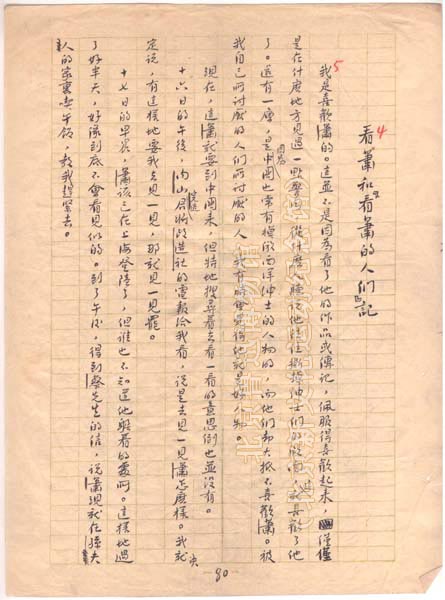 4
看蕭和“看蕭的人們”記
5
我是喜歡蕭的。這並不是因爲看了他的作品或傳記，佩服得喜歡起來，僅僅
是在什麽地方見過一點警句，從什麽人聽説他往往撕掉紳士們的假面，這就喜歡了他
了。還有一層，是因爲中國也常有模倣西洋紳士的人物的，而他們却大抵不喜歡蕭。被
我自己所討厭的人們所討厭的人，我有時會覺得他就是好人物。
現在，這蕭就要到中國來，但特地搜尋着去看一看的意思倒也並没有。
十六日的午後，内山完造君將改造社的電報給我看，説是去見一見蕭怎麽樣。我就決
定説，有這樣地要我去見一見，那就見一見罷。
十七日的早晨，蕭該已在上海登陸了，但誰也不知道他躱着的處所。這樣地過
了好半天，好像到底不會看見似的。到了午後，得到蔡先生的信，説蕭現就在孫夫
人的家裏吃午飯，教我趕緊去。
80
北京鲁迅博物馆